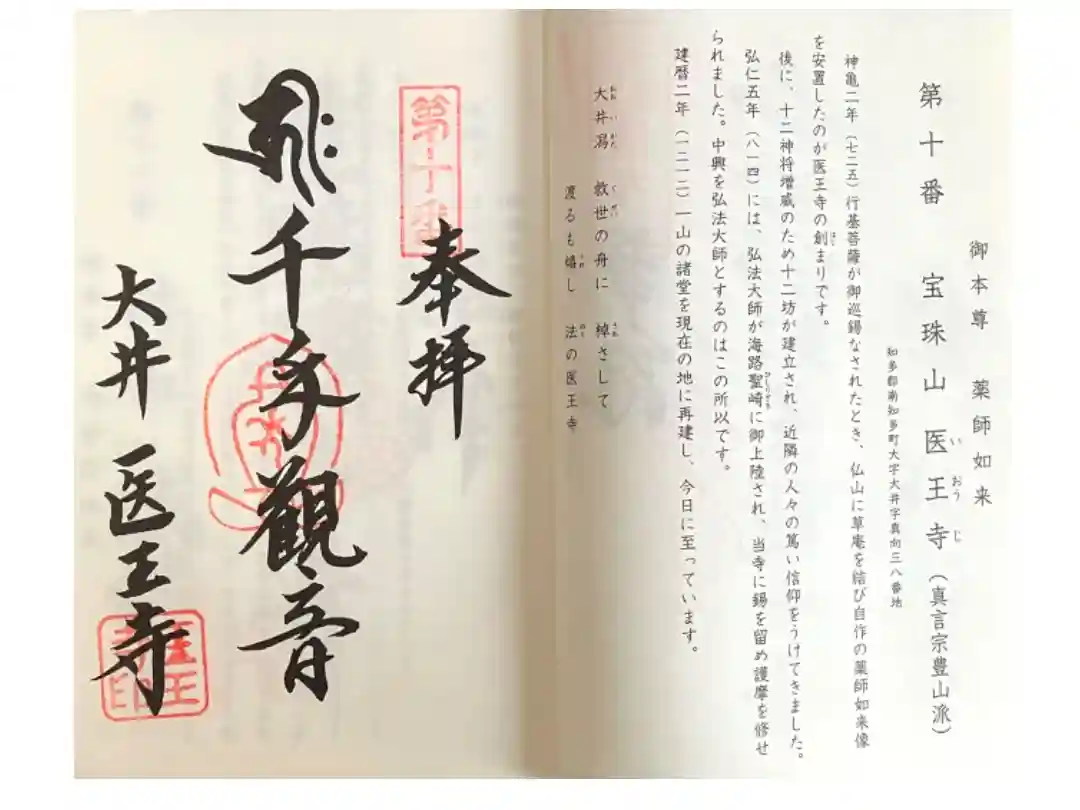 第十番　宝珠山医王寺（真言宗豊山派）
いおうじ
御本尊　薬師如来
知多郡南知多町大字大井字真向三八番地
神亀二年（七二五）行基菩薩が御巡錫なされたとき、仏山に草庵を結び自作の薬師如来像
を安置したのが医王寺の創まりです。
はじ
後に、十二神将増威のため十二坊が建立され、近隣の人々の篤い信仰をうけてきました。
弘仁五年（八一四）には、弘法大師が海路聖崎に御上陸され、当寺に錫を留め護摩を修せ
ひじりざき
られました。中興を弘法大師とするのはこの所以です。
建暦二年（一二一二）一山の諸堂を現在の地に再建し、今日に至っています。
大井潟　救世の舟に　棹さして
おおいがた　くぜい　さお
渡るも嬉し　法の医王寺
うれ　のり
第十番
奉拝
千手觀音
大井　医王寺
医王寺印